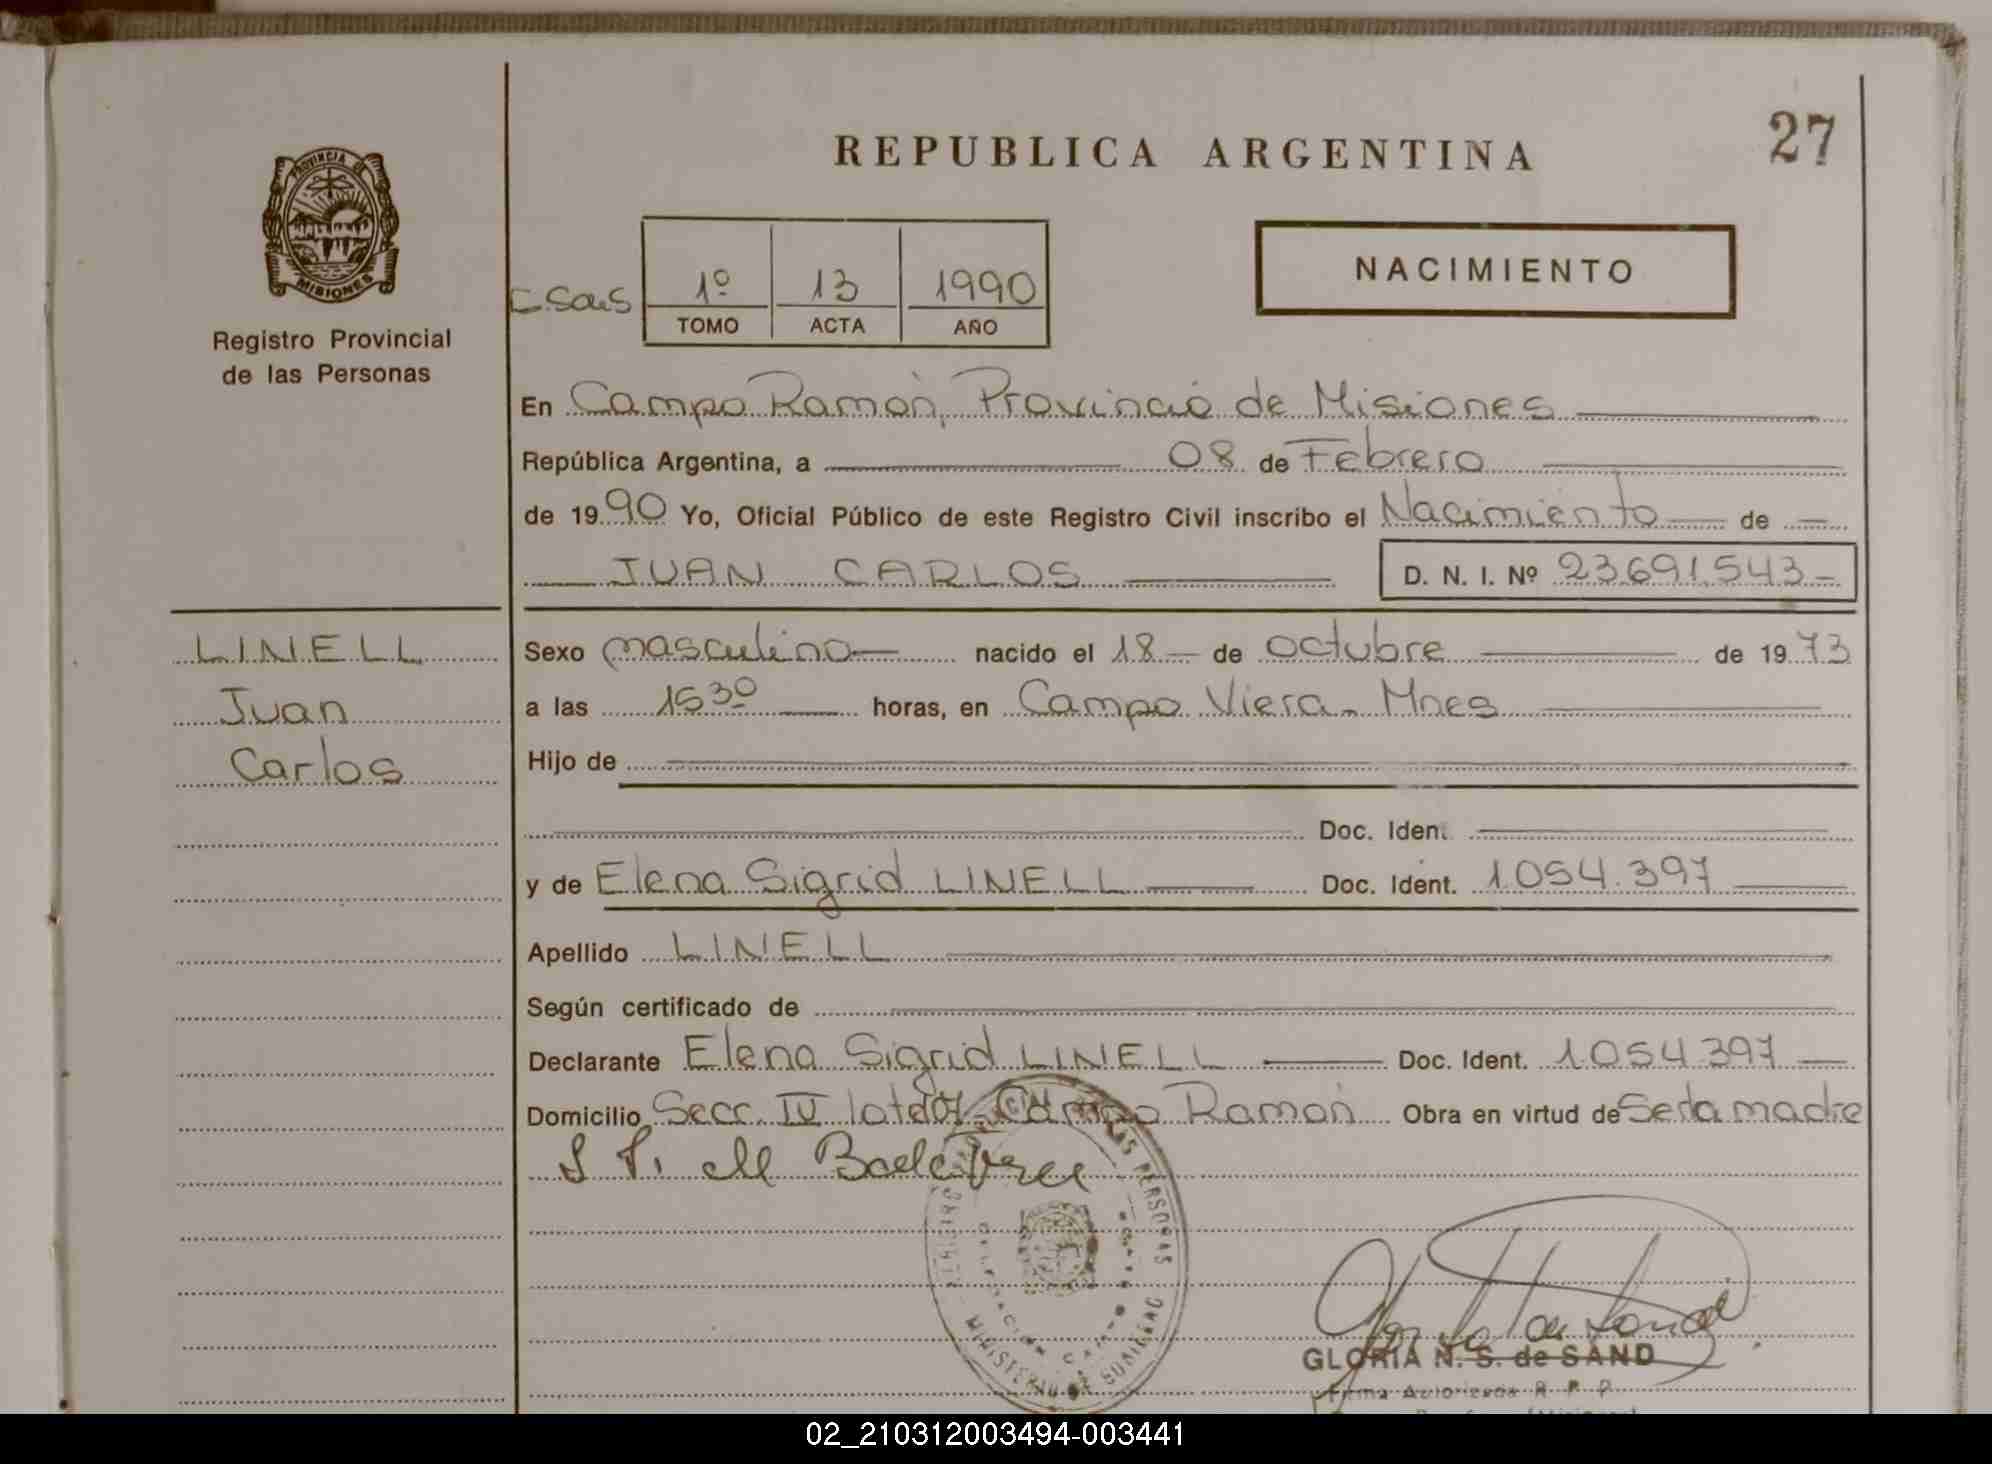 REPUBLICA ARGENTINA
27
PROVINCIA DE
MISIONES
Registro Provincial
de las Personas
1º 13 1990
TOMO ACTA AÑO
NACIMIENTO
En Campo Ramón, Provincia de Misiones
República Argentina, a 08 de Febrero
de 1990 Yo, Oficial Público de este Registro Civil inscribo el Nacimiento de
JUAN CARLOS D. N. I. Nº 23691543
LINELL
Juan
Carlos
Sexo masculino nacido el 18 de octubre de 1973
a las 15 30 horas, en Campo Viera - Mnes
Hijo de
Doc. Iden.
y de Elena Sigrid LINELL Doc. Ident. 1.054.397
Apellido LINELL
Según certificado de
Declarante Elena Sigrid LINELL Doc. Ident. 1.054.397
Domicilio Secc. IV Campo Ramón Obra en virtud de Ser la madre
PERSONAS
MINISTERIO DE GOBIERNO
GLORIA N. S. de SAND
Firma Autorizada R. P. P.
02_210312003494-003441